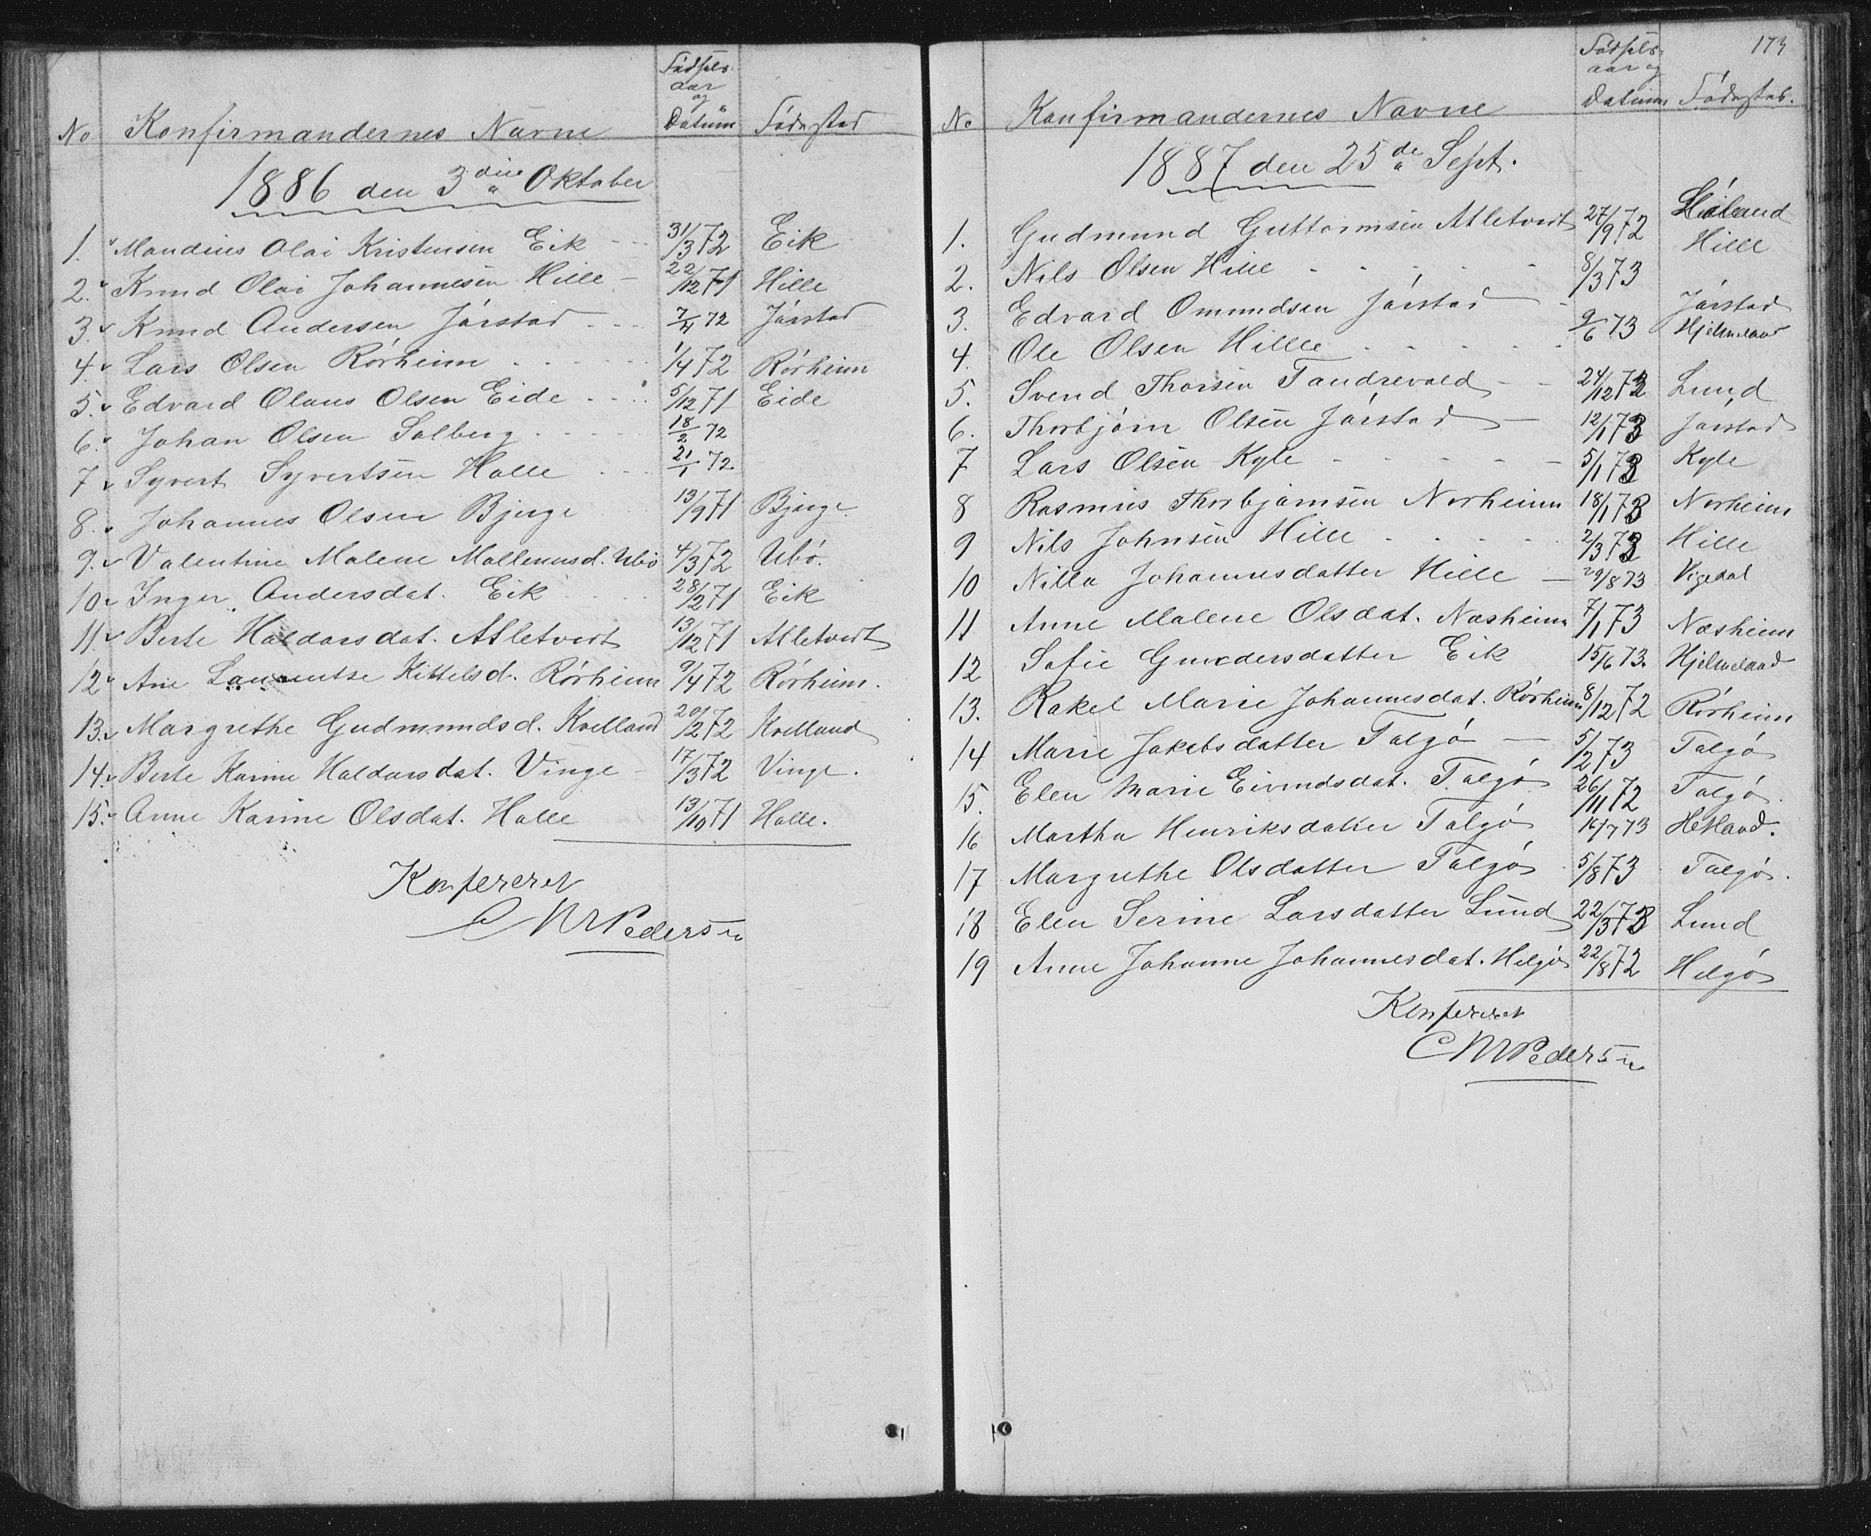 No Konfirmandernes Navne Fødsels- aar og Datum Fødestad
1886 den 3die Oktober
1. Mandius Olai Kristensen Eik 31/3 72 Eik
2. Knud Olai Johannesen Hille 22/12 71 Hille
3. Knud Andersen Jørstad 7/4 72 Jørstad
4. Lars Olsen Rørheim 1/4 72 Rørheim
5. Edvard Olaus Olsen Eide 5/12 71 Eide
6. Johan Olsen Solberg 18/2 72
7 Syvert Syvertsen Halle 21/1 72
8. Johannes Olsen Bjerge 13/9 71 Bjerge.
9. Valentine Malene Mallenusd. Ubø 4/3 72 Ubø.
10. Inger Andersdat. Eik 28/12 71 Eik
11. Berte Haldorsdat. Atletveit 13/12 71 Atletveit
12 Ane Laurentse Kittelsd. Rørheim 9/4 72 Rørheim.
13. Margrethe Gudmundsd. Kvelland 20/2 72 Kvelland
14. Berte Karine Haldorsdat. Vinge 17/3 72 Vinge.
15. Anne Karine Olsdat. Halle 13/10 71 Halle.
Konfereret
C M Pedersen
173
No Konfirmandernes Navne Fødsels- aar og Datum Fødestad.
1887 den 25de Sept.
1. Gudmund Guttormsen Atletveit 27/9 72 Høland
2. Nils Olsen Hille 8/3 73 Hille
3. Edvard Omundsen Jørstad Jørstad
4. Ole Olsen Hille 9/6 73 Hjelmeland
5. Svend Thorsen Tandrevold 24/12 72 Lund
6. Thorbjørn Olsen Jørstad 12/1 73 Jørstad
7 Lars Olsen Kyle 5/1 73 Kyle
8 Rasmus Thorbjørnsen Norheim 18/1 73 Norheim
9 Nils Johnsen Hille 2/3 73 Hille
10 Nilla Johannesdatter Hille 29/8 73 Vigedal
11 Anne Malene Olsdat. Næsheim 7/1 73 Næsheim
12 Sofie Gundersdatter Eik 15/6 73. Hjelmeland
13. Rakel Marie Johannesdat. Rørheim 8/12 72 Rørheim
14 Marie Jakobsdatter Talgø 5/2 73 Talgø
15. Elen Marie Eivindsdat. Talgø 26/11 72 Talgø.
16 Martha Henriksdatter Talgø 16/7 73 Hetland.
17 Margrethe Olsdatter Talgø 5/8 73 Talgø.
18 Elen Serine Larsdatter Lund 22/3 73 Lund
19 Anne Johanne Johannesdat. Helgø 22/8 72 Helgø
Konfereret
C M Pedersen